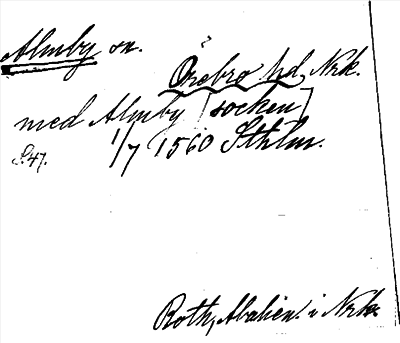 Almby sn.
Örebro hd, Nrk.
med Almby [socken]
S. 47. 1/7 1560 Sthlm.
Roth, Abalien. i Nrke.